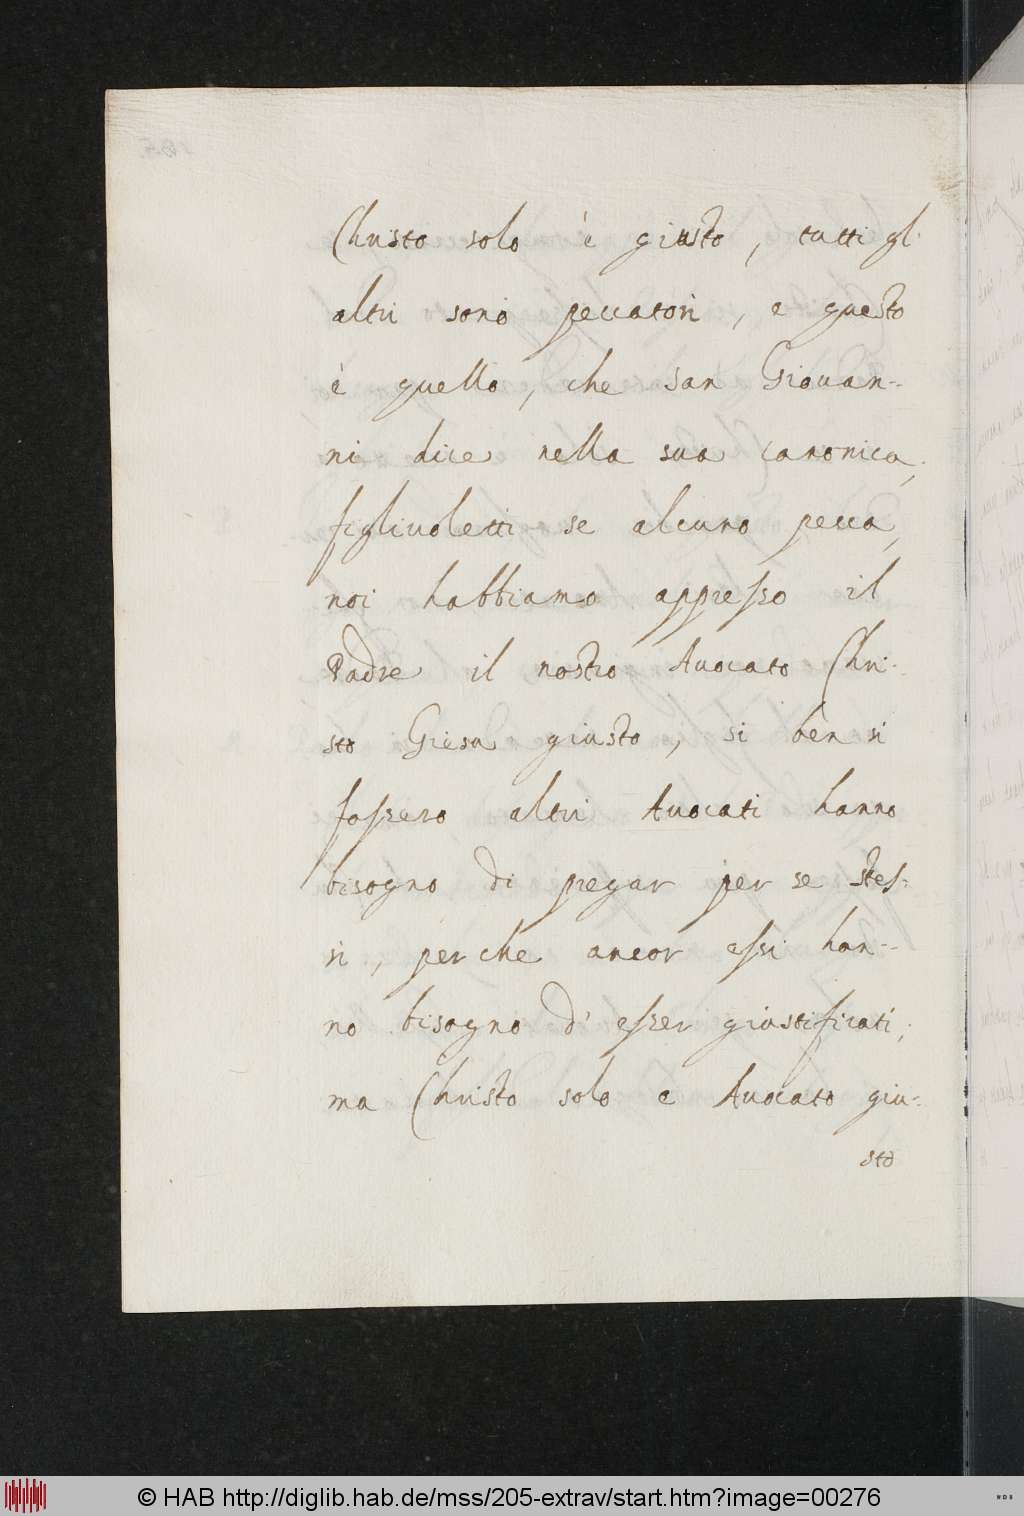 Christo solo è giusto, tutti gl'
altri sono peccatori, e questo
è quello, che san Giouan-
ni dice nella sua canonica,
figliuoletti se alcuno pecca,
noi habbiamo appresso il
Padre il nostro Auocato Chri-
sto Giesu giusto, si ben vi
fossero altri Auocati hanno
bisogno di pregar per se stes-
si, perche ancor essi han-
no bisogno d'esser giustificati,
ma Christo solo e Auocato giu-
sto
© HAB http://diglib.hab.de/mss/205-extrav/start.htm?image=00276